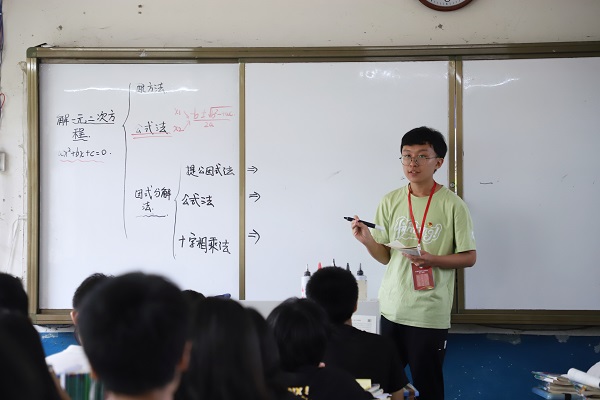 解一元二次方
程
ax²+bx+c=0.
配方法
公式法
x₁
x₂
因式分解
法.
提公因式法 ⇒
公式法 ⇒
十字相乘法 ⇒